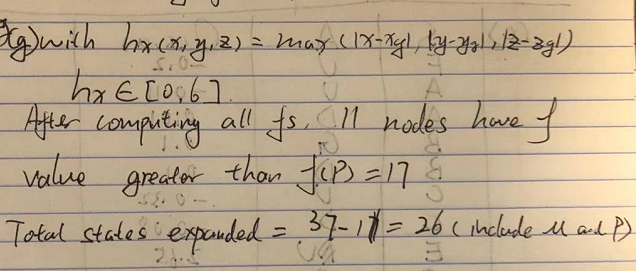 xg) with hx(x, y, z) = max (|x-xg|, |y-yg|, |z-zg|)
hx ∈ [0,6]
After computing all fs, 11 nodes have f
value greater than f(P) = 17
Total states expanded = 37-11 = 26 (include M and P)